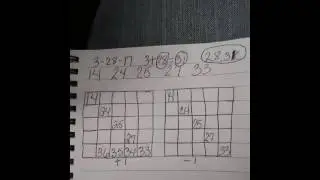 3-28-17 3+28=31 28,31
14 24 25 27 33
14 14
24 24
25 25
27 27
36 35 34 33 33
+1 -1